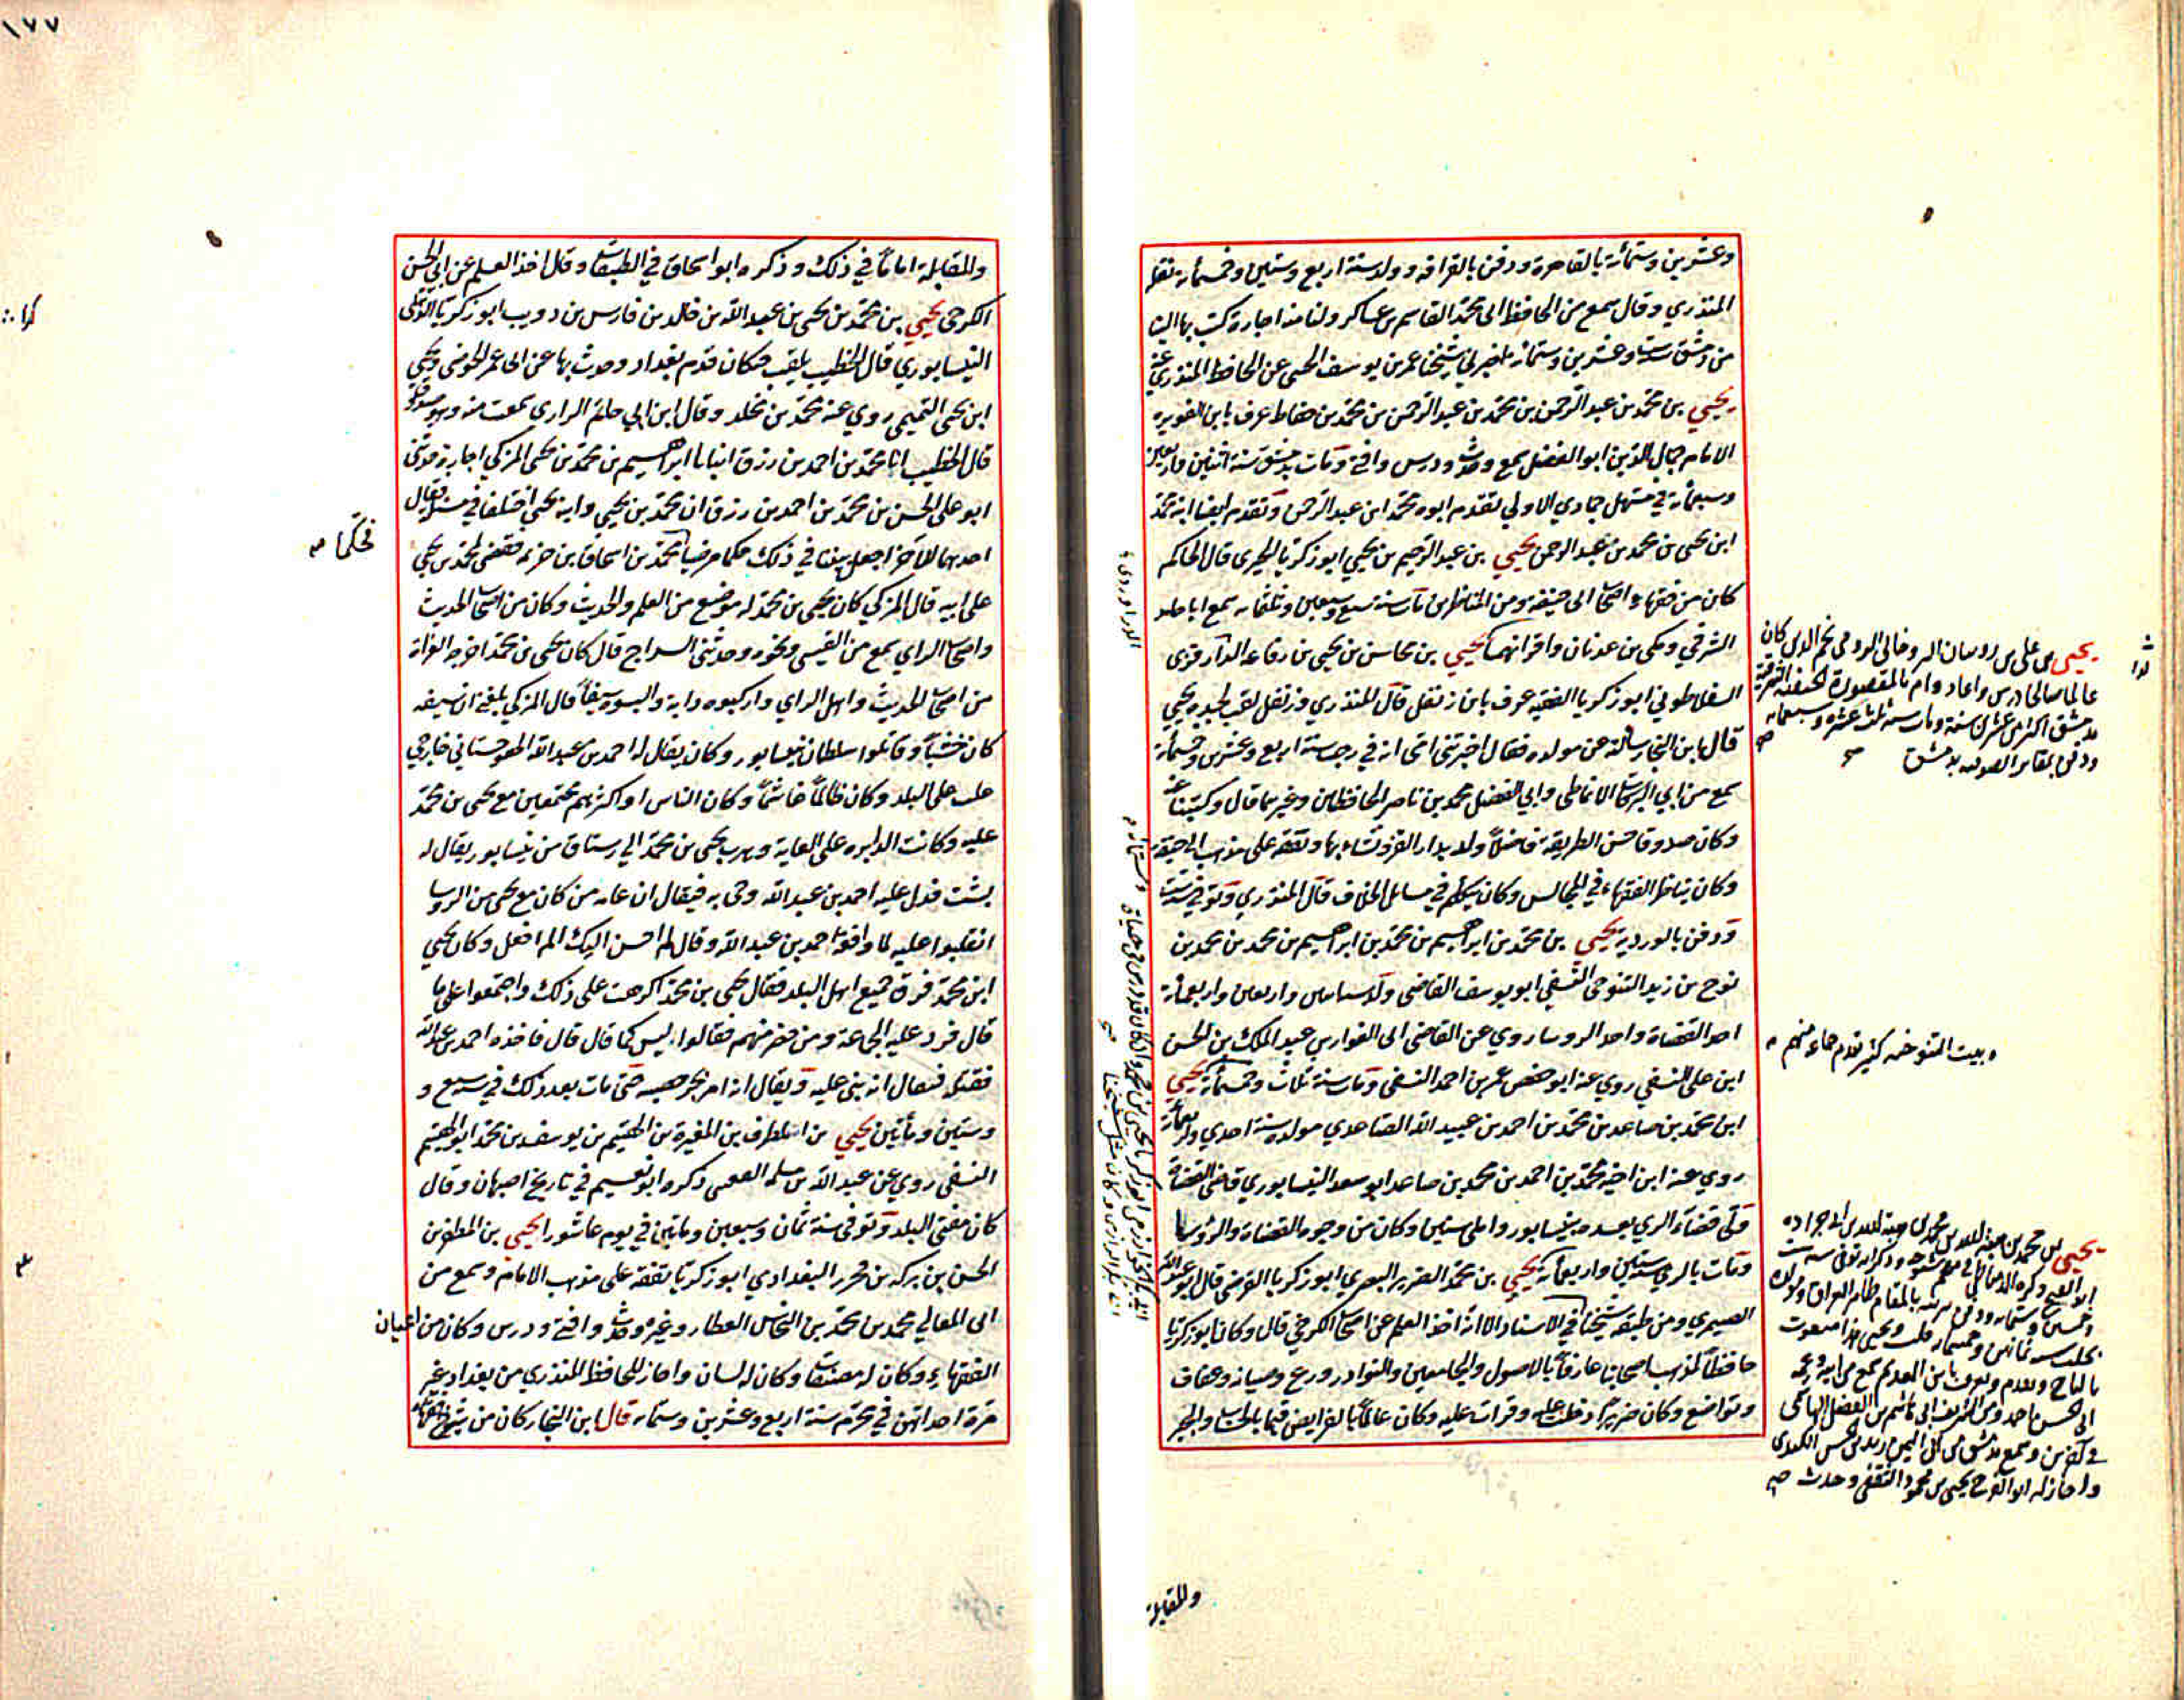 وعشرين وستمائة بالقاهرة ودفن بالقرافة وولد سنة اربع وستين وخمسمائة نقله
المنذري وقال سمع من الحافظ ابى محمد القاسم بن عساكر ولنا منه اجازة كتب بها الينا
من دمشق سنة وعشرين وستمائة اخبرني شيخنا عمر بن يوسف الحنفى عن الحافظ المنذري عنه
يحيى بن محمد بن عبد الرحمن بن محمد بن عبد الرحمن بن محمد بن حفاظ عرف بابن الفويره
الامام جمال الدين ابو الفضل سمع وحدث ودرس وافتى ومات بدمشق سنة اثنين واربعين
وسبعمائة في مستهل جمادي الاولي تقدم ابوه محمد ابن عبد الرحمن وتقدم ايضا ابنه محمد
ابن يحيى بن محمد بن عبد الرحمن يحيى بن عبد الرحيم بن يحيى ابو زكريا الحيرى قال الحاكم
كان من فقهاء اصحاب ابى حنيفة ومن المناظرين مات سنة سبع وسبعين وثلثمائه سمع ابا حامد
الشرقي ومكى بن عبدان واقرانهما يحيى بن محاسن بن يحيى بن رفاعه الدارقزى
السقلاطوني ابو زكريا الفقيه عرف بابن زنفل قال المنذري وزنفل لقب لجده يحيى
قال ابن النجار سالته عن مولده فقال اخبرتنى امى انه في رجب سنة اربع وعشرين وخمسمائة
سمع من ابي البركات الانماطى وابي الفضل محمد بن ناصر الحافظين وغيرهما قال وكتبنا عنه
وكان صدوقا حسن الطريقة فاضلا ولد بدار القز ونشاء بها وتفقه على مذهب ابى حنيفة
وكان يناظر الفقهاء في المجالس وكان يتكلم في مسائل الخلاف قال المنذري وتوفي سنة ست
ودفن بالوردية يحيى بن محمد بن ابراهيم بن محمد بن ابراهيم بن محمد بن محمد بن
نوح بن زيد التنوخى النسفي ابو يوسف القاضى ولد سنة واربعين واربعمائة
احد القضاة واحد الروسا روي عن القاضى ابى الفوارس عبد الملك بن الحسن
ابن على النسفي روي عنه ابو حفص عمر بن احمد النسفى ومات سنة ثلاث وخمسمائة يحيى
ابن محمد بن صاعد بن محمد بن احمد بن عبيد الله الصاعدي مولده سنة احدي واربعمائة
روي عنه ابن اخيه محمد بن احمد بن محمد بن صاعد ابو سعد النيسابوري قاضى القضاة
ولى قضاء الري بعده بنيسابور واملى سنين وكان من وجوه القضاة والروسا
ومات بالري سنة ستين واربعمائة يحيى بن محمد الضرير البصري ابو زكريا القرضى قال ابو عبد الله
الصيمري ومن طبقة شيخنا في الاسناد الا انه اخذ العلم عن اصحاب الكرخي قال وكان ابو زكريا
حافظا لمذهب اصحابنا عارفا بالاصول والجامعين والنوادر ورع وصيانه وعفاف
وتواضع وكان ضريرا دخلت عليه وقرات عليه وكان عالما بالفرايض قيما بالحساب والجبر
والمقابلة
يحيى بن على بن روسان الروخالى الرومى نجم الدين كان
عالما صالحا درس واعاد وام بالمقصورة الحنفية الشرقية
بدمشق اكثر من عشرين سنة ومات سنة ثلث عشره وسبعمايه
ودفن بمقابر الصوفيه بدمشق صح
بيت التنوخيه كثير تقدم جماعه منهم
يحيى بن محمد بن هبة الله بن محمد بن هبة الله بن ابى جراده
ابو الفتح وذكره الدمياطى في معجم شيوخه وذكر انه توفى سنة ست
وخمسين وستمايه ودفن بتربته بالمقام ظاهر العراق ومولده
بحلب سنة ثمانين وخمسمايه
بالتاج وتقدم ويعرف بابن العديم سمع من ابيه وعمه
ابى الحسن احمد ومن الشريف ابى هاشم بن الفضل الهاشمى
في اخرين وسمع بدمشق من ابى اليمن زيد بن الحسن الكندى
واجاز له ابو الفرج يحيى بن محمود الثقفى وحدث صح
١٧٧
والمقابلة اماما في ذلك وذكره ابو اسحاق في الطبقات وقال اخذ العلم عن ابى الحسن
الكرخى يحيى بن محمد بن يحيى بن عبد الله بن خالد بن فارس بن ذويب ابو زكريا الذهلى
النيسابوري قال الخطيب يلقب حيكان قدم بغداد وحدث بها عن ابى عمر الحوضى ويحيى
ابن يحيى التميمى روي عنه محمد بن مخلد وقال ابن ابي حاتم الرازى سمعت منه وهو صدوق
قال الخطيب انا محمد بن احمد بن رزق انبانا ابراهيم بن محمد بن يحيى المزكي اجازة وحدثنى
ابو على الحسن بن محمد بن احمد بن رزق ان محمد بن يحيى وابنه يحيى اختلفا في مسئلة فقال
احدهما للاخر اجعل بيننا في ذلك حكما فرضيا محمد بن اسحاق بن خزيمه فقضى لمحمد بن يحيى
على ابيه قال المزكي كان يحيى بن محمد له موضع من العلم والحديث وكان من اصحاب الحديث
واصحاب الراي سمع من القيسى ونحوه وحدثنى السراج قال كان يحيى بن محمد اخرجه الغزاة
من اصحاب الحديث واهل الراي واركبوه دابة والبسوه سيفا قال المزكي بلغنى ان سيفه
كان خشبا وقاتلوا سلطان نيسابور وكان يقال له احمد بن عبد الله الخوجستاني خارجي
غلب على البلد وكان ظالما غاشما وكان الناس او اكثرهم مجتمعين مع يحيى بن محمد
عليه وكانت الدايره على العامة وهرب يحيى بن محمد الي رستاق من نيسابور يقال له
بشت فدل عليه احمد بن عبد الله وجى به فيقال ان عامه من كان مع يحيى من الروسا
انقلبوا عليه لما واقفه احمد بن عبد الله وقال لهم احسن اليك الم افعل وكان يحيى
ابن محمد فرق جميع اهل البلد فقال يحيى بن محمد اكرهت على ذلك واجتمعوا على ما
قال فرد عليه الجماعة ومن حضر منهم فقالوا ليس كما قال قال فاخذه احمد بن عبد الله
فقتله فيقال انه بنى عليه ويقال انه امر بجر خصييه حتى مات بعد ذلك في سبع و
وستين ومأتين يحيى بن المطرف بن المغيرة بن الهيثم بن يوسف بن محمد ابو الهيثم
روي عن عبد الله بن مسلمه القعنبى ذكره ابو نعيم في تاريخ اصبهان وقال
كان مفتى البلد وتوفى سنة ثمان وسبعين ومايتين في يوم عاشورا يحيى بن المظفر بن
الحسن بن بركه بن محرز البغدادي ابو زكريا تفقه على مذهب الامام وسمع من
ابى المعالي محمد بن محمد بن النحاس العطار وغيره وحدث وافتى ودرس وكان من اعيان
الفقهاء وكان له مصنفات وكان له لسان واجاز للحافظ المنذري من بغداد غير
مرة احداهن في محرم سنة اربع وعشرين وستمايه قال ابن النجار كان من شيوخ الفقهاء
فحكما